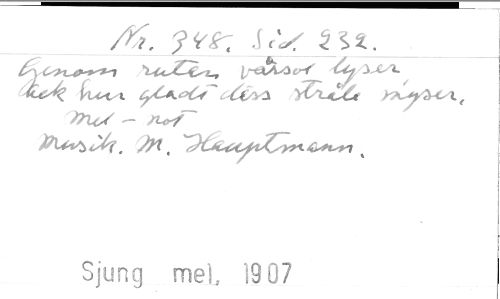 Nr. 348. Sid. 232.
Genom rutan vårsol lyser,
ack hur gladt dess stråle myser,
Mel - not
Musik. M. Hauptmann.
Sjung mel, 1907